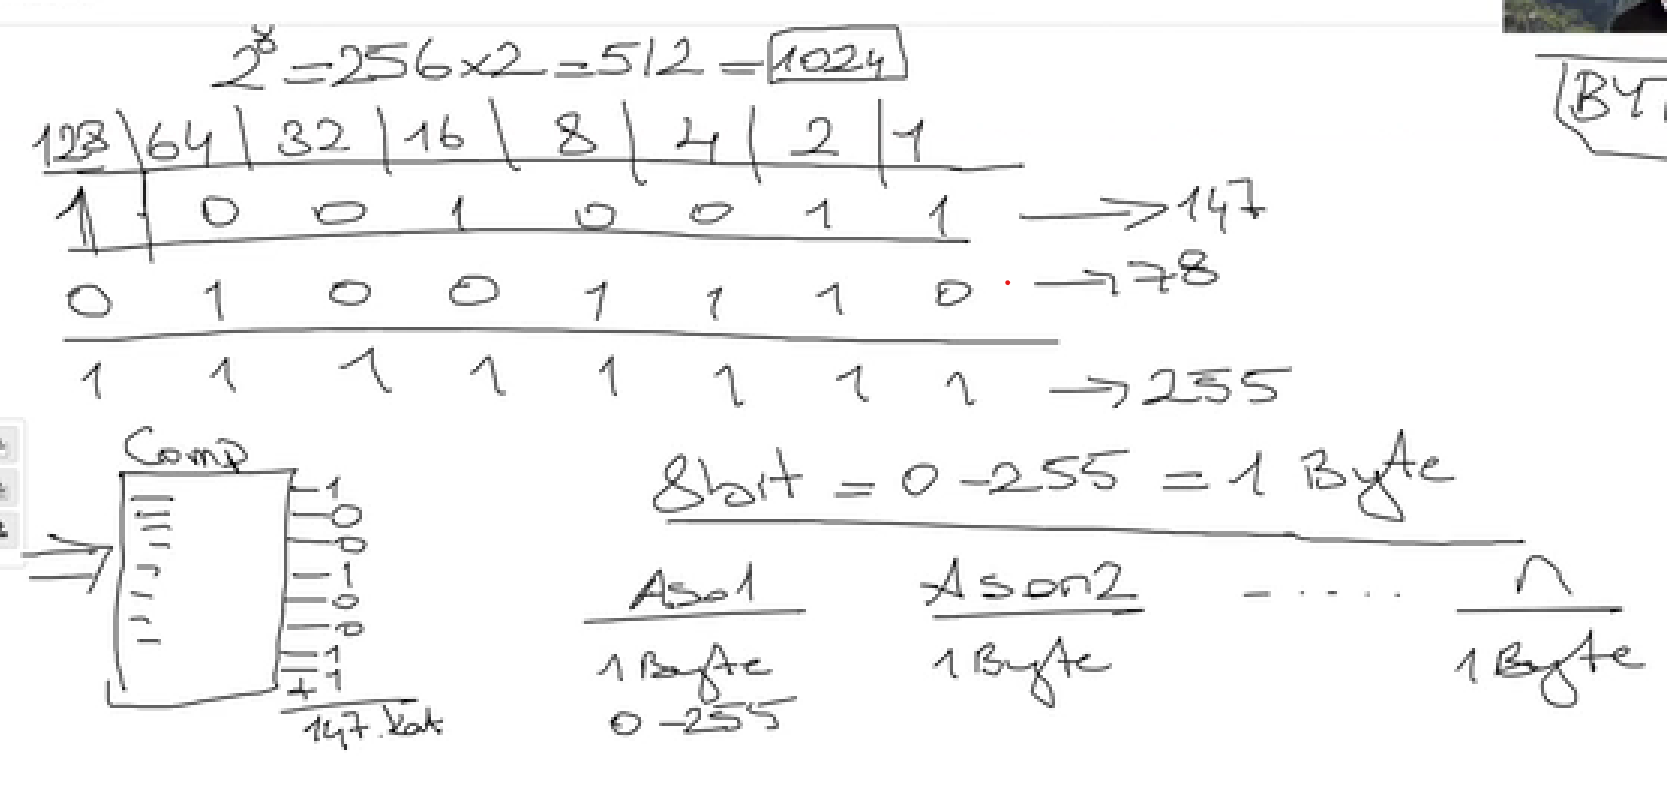 2⁸=256×2=512=1024
BYT
128|64|32|16|8|4|2|1
1 0 0 1 0 0 1 1 →147
0 1 0 0 1 1 1 0 →78
1 1 1 1 1 1 1 1 →255
Comp
1
0
0
1
0
0
1
+1
147. kat
8bit = 0-255 = 1 Byte
Ason2 ...... n
1 Byte 1 Byte 1 Byte
0-255